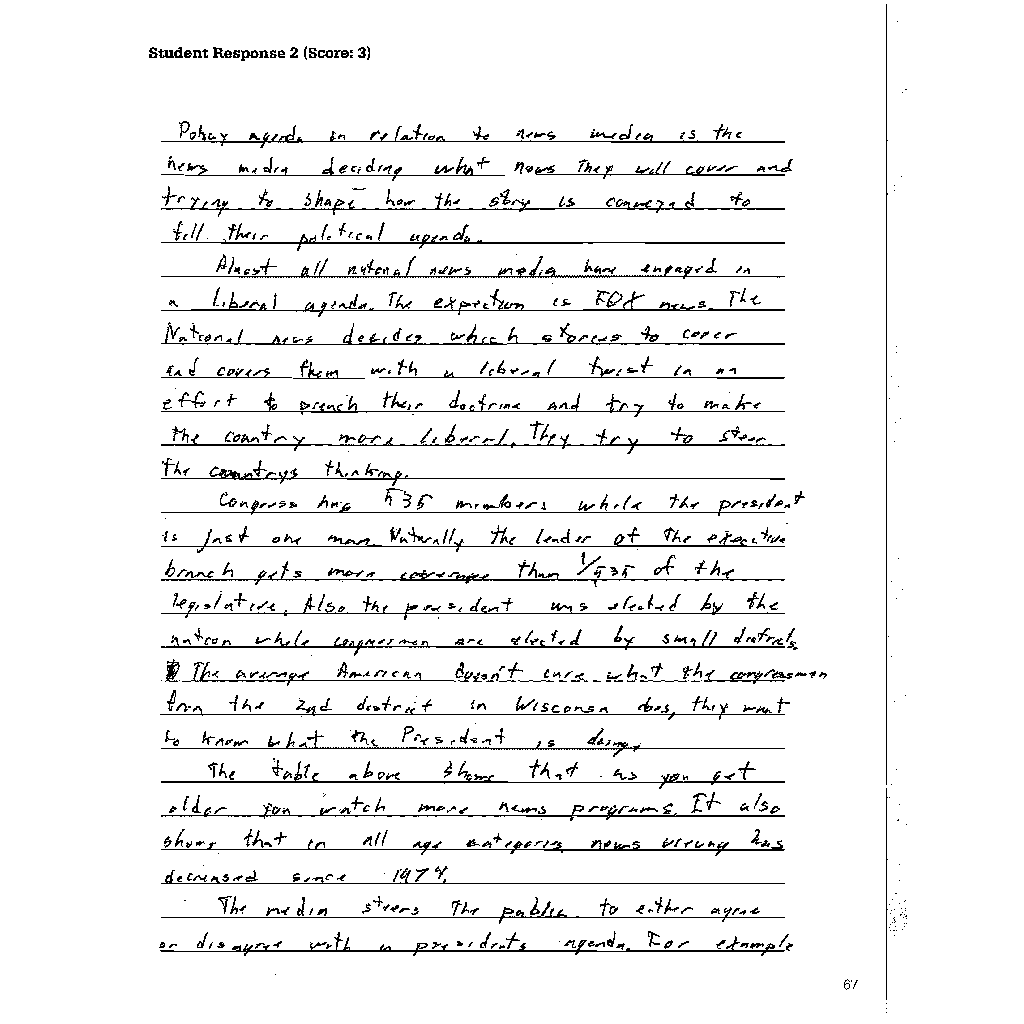 Student Response 2 (Score: 3)
Policy agenda in relation to news media is the
news media deciding what news they will cover and
trying to shape how the story is conveyed to
fell their political agenda.
Almost all national news media have engaged in
a liberal agenda. The expection is FOX news. The
National news decides which stories to cover
and covers them with a liberal twist in an
effort to preach their doctrine and try to make
the country more liberal. They try to steer
the countrys thinking.
Congress has 535 members while the president
is just one man. Naturally the leader of the executive
branch gets more coverage than 1/535 of the
legislative. Also the president was elected by the
nation while congressmen are elected by small districts.
The average American doesn't care what the congressmen
from the 2nd district in Wisconsin does, they want
to know what the President is doing.
The table above shows that as you get
older you watch more news programs. It also
shows that in all age categories news viewing has
decreased since 1974.
The media steers the public to either agree
or disagree with a presidents agenda. For example
67